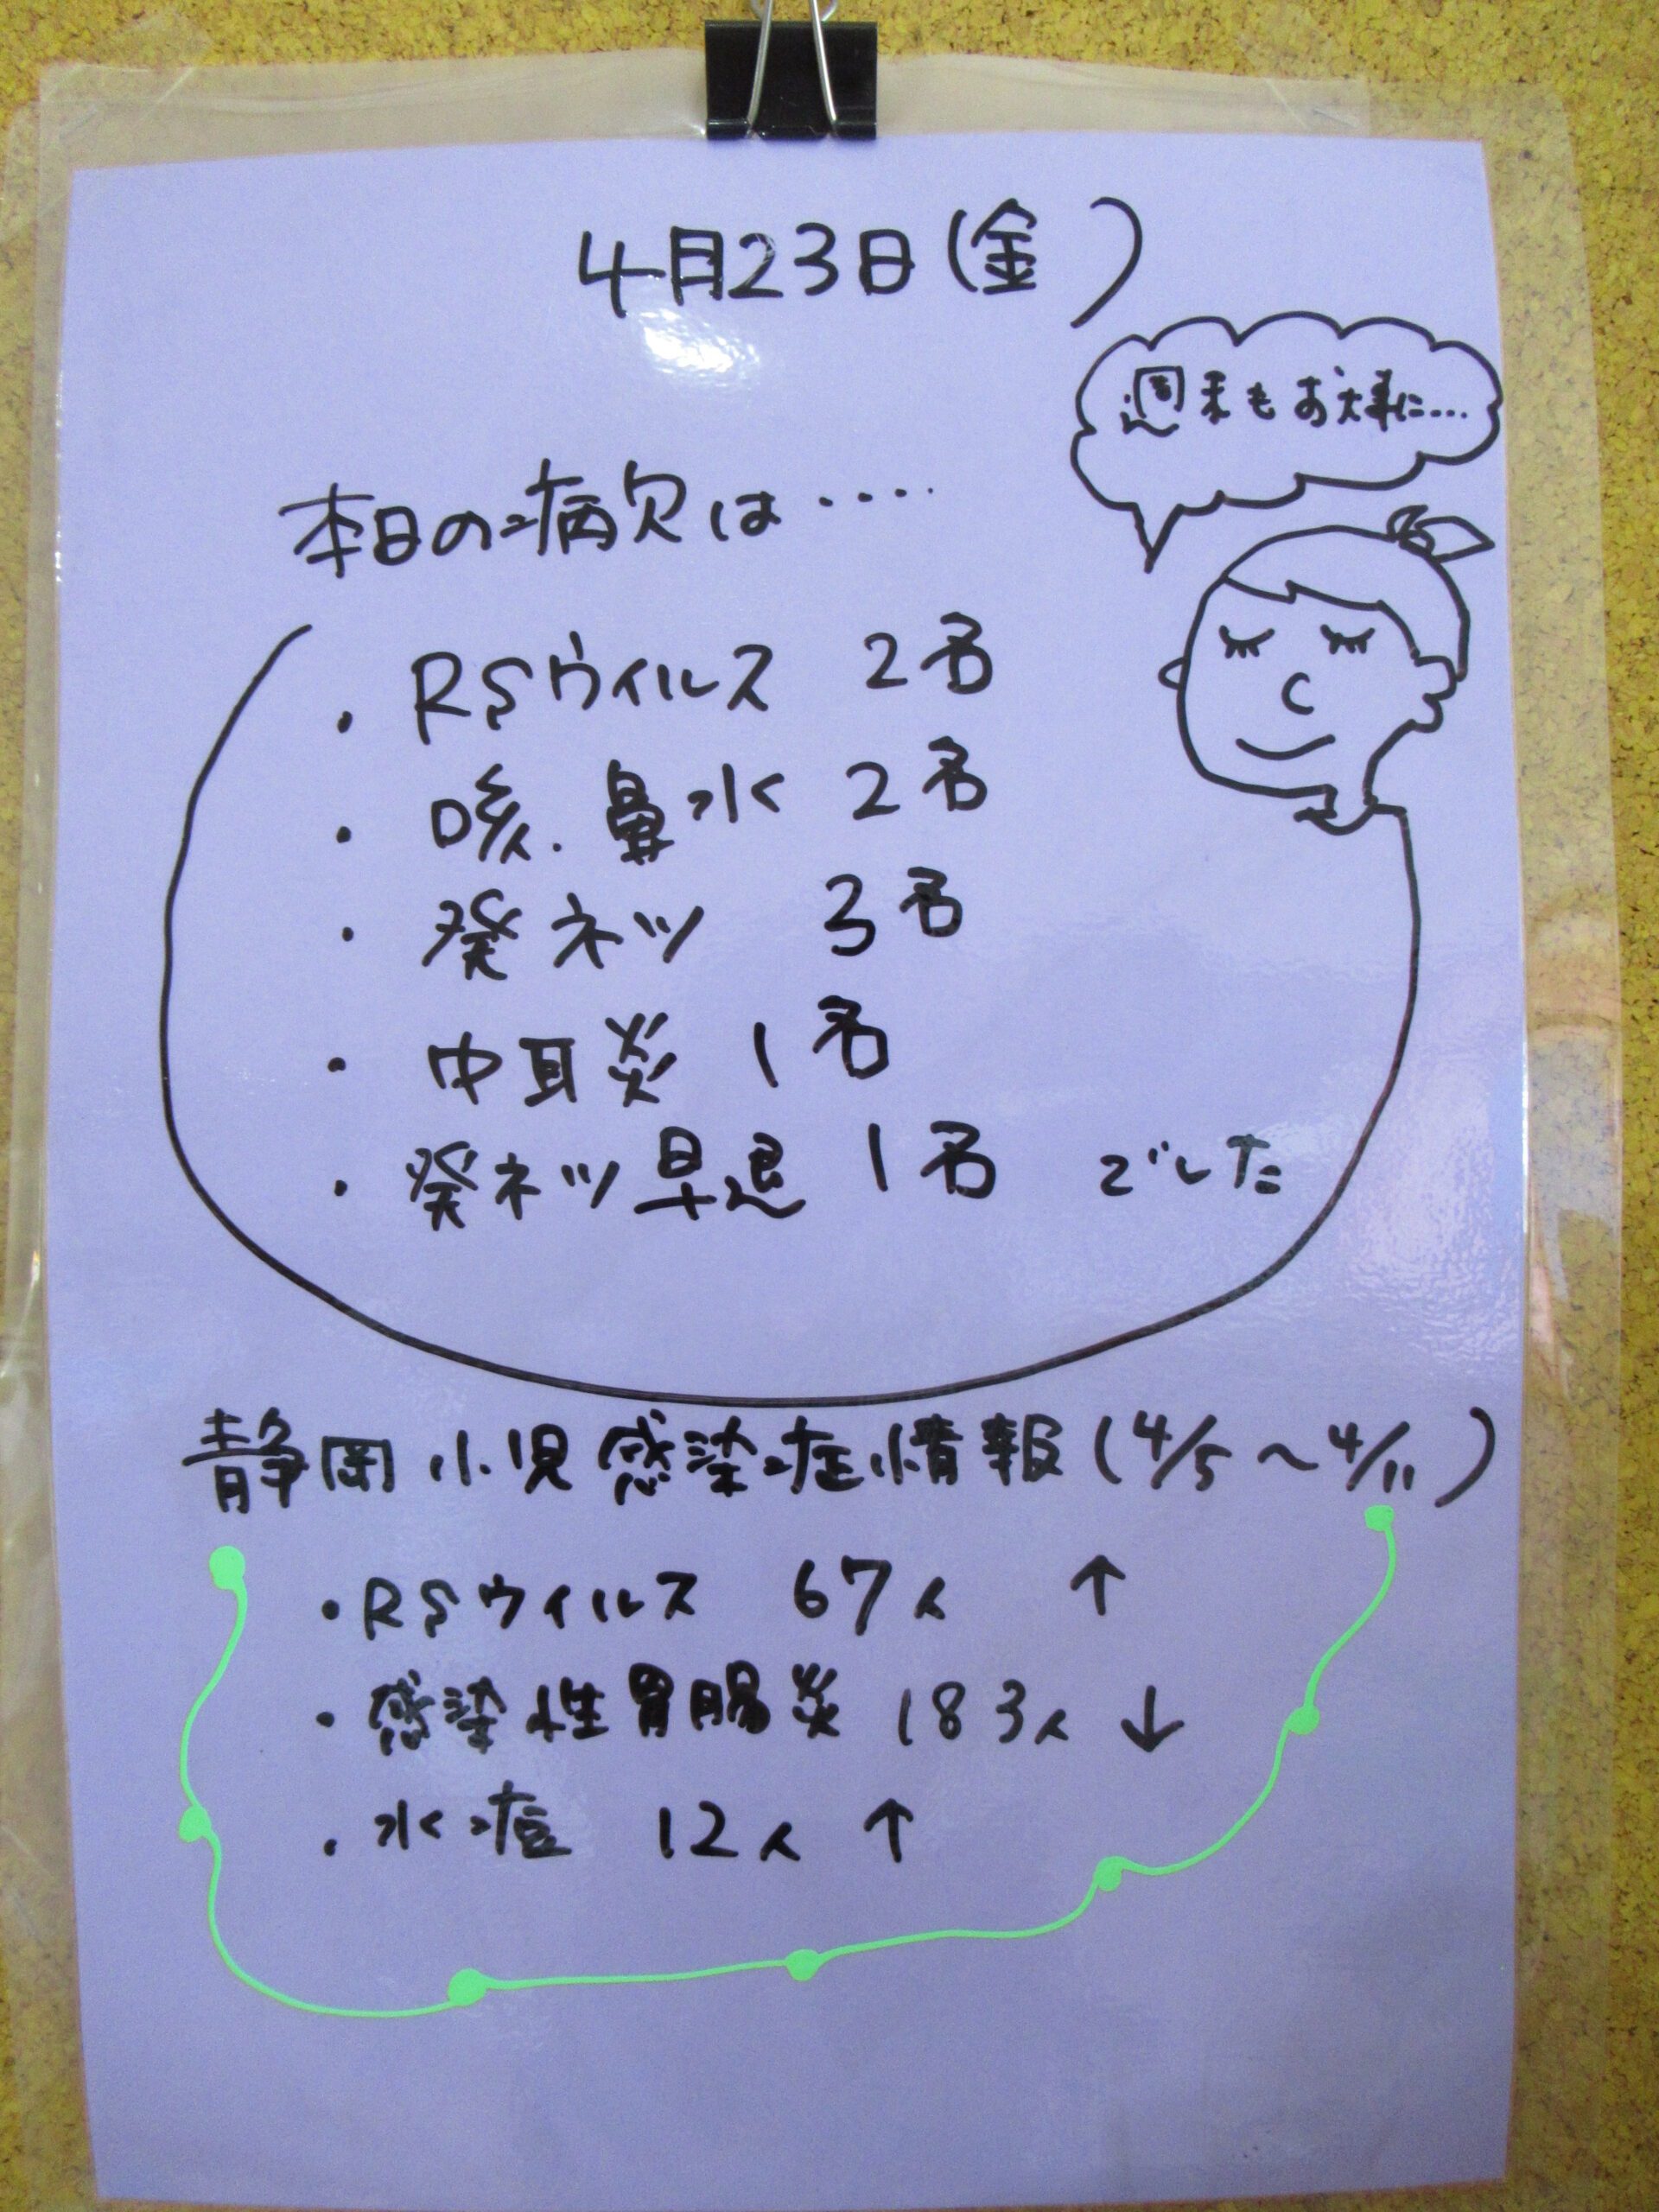 4月23日(金)
週末もお大事に…
本日の病欠は・・・・・
・RSウィルス 2名
・咳.鼻水 2名
・発ネツ 3名
・中耳炎 1名
・発ネツ早退 1名 でした
静岡小児感染症情報(4/5～4/11)
・RSウィルス 67人 ↑
・感染性胃腸炎 183人 ↓
・水痘 12人 ↑